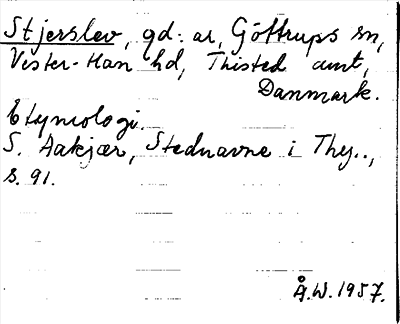 Stjerslev, gd. ar, Göttrups sn,
Vester-Han hd, Thisted amt,
Danmark.
Etymologi.
S. Aakjær, Stednavne i Thy..,
s. 91.
Å.W. 1957.